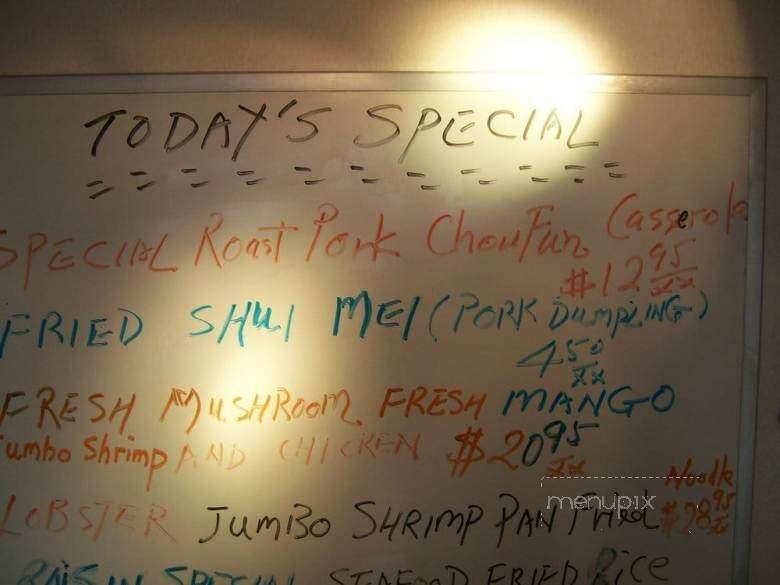 TODAY'S SPECIAL
SPECIAL Roast Pork Chow Fun Casserole
$12 95/xx
FRIED SHUI MEI (PORK DUMPLING)
4 50/xx
FRESH MUSHROOM FRESH MANGO
Jumbo Shrimp AND CHICKEN $20 95/xx
Noodle
LOBSTER JUMBO SHRIMP PAN Fried $28 95/xx
menupix
RAISIN SPECIAL SEAFOOD FRIED Rice